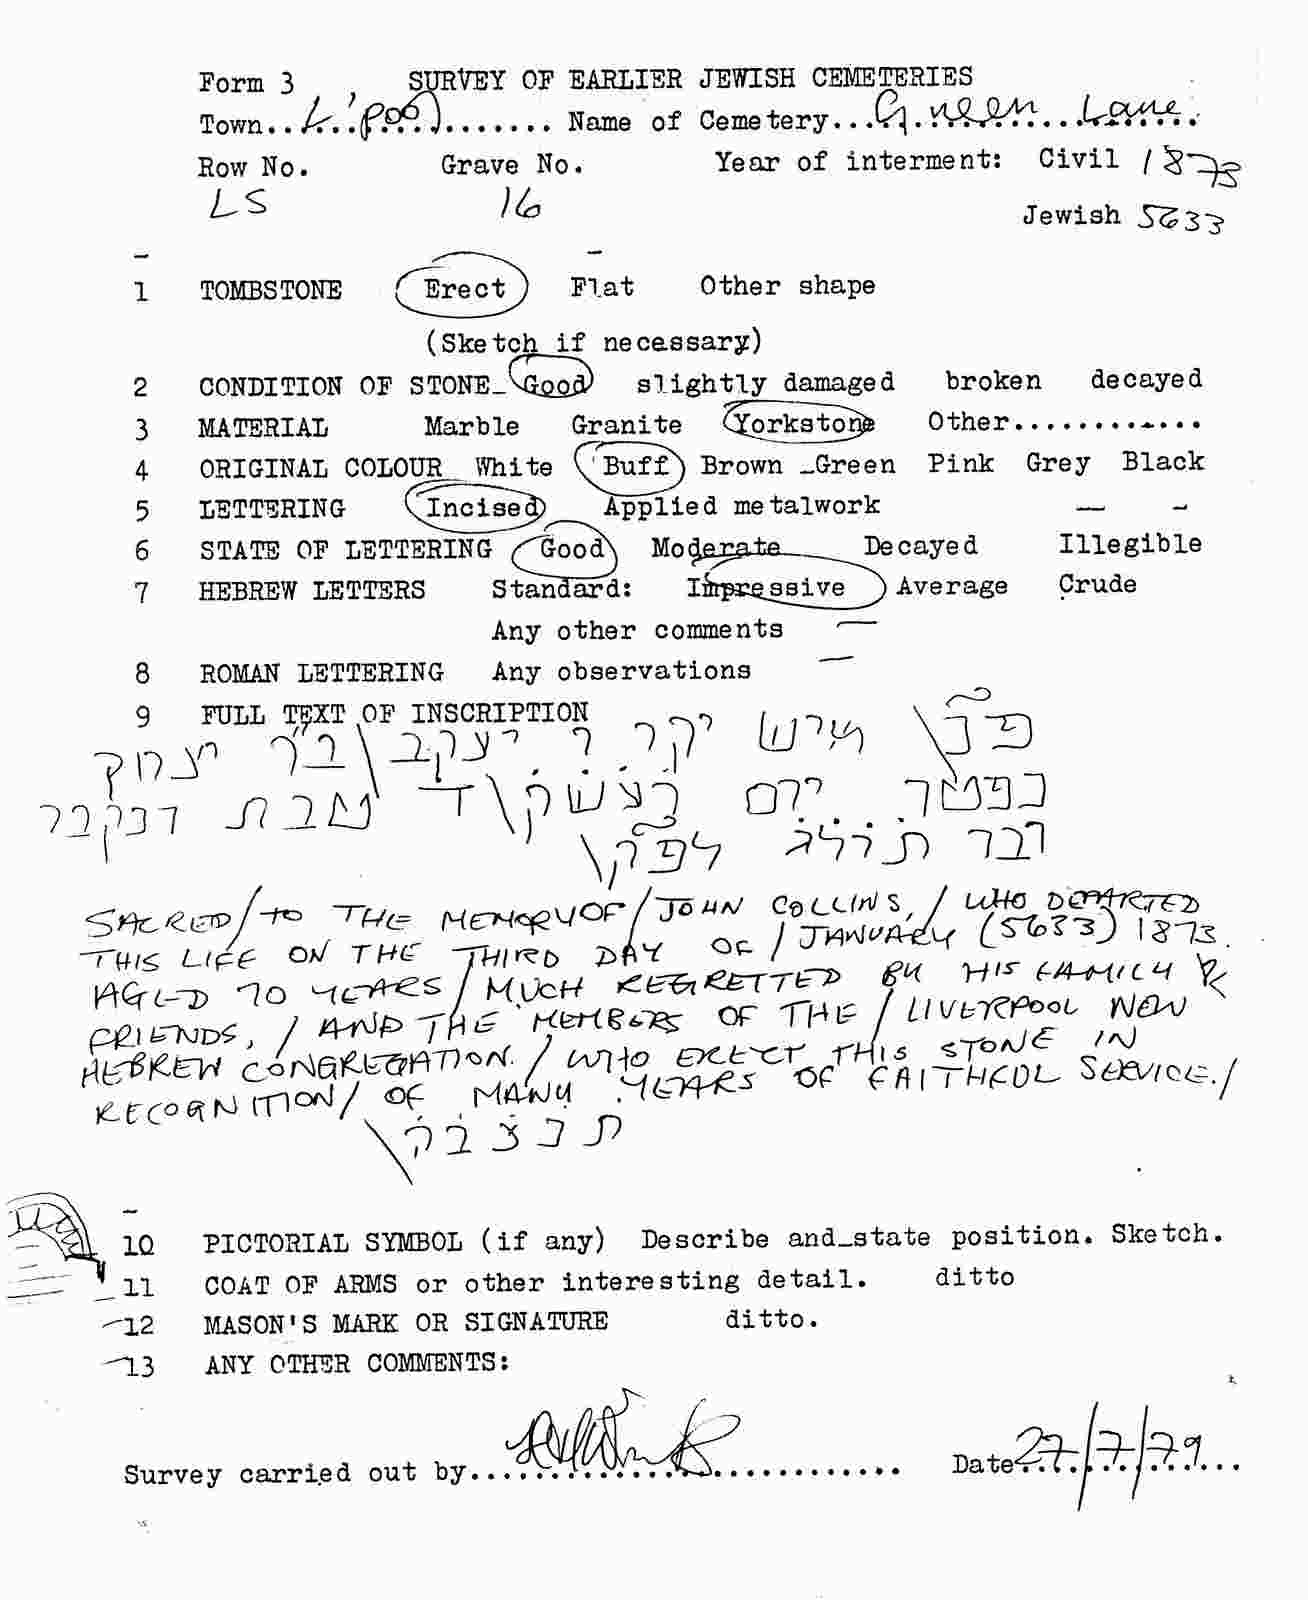 Form 3 SURVEY OF EARLIER JEWISH CEMETERIES
Town..L'pool....... Name of Cemetery...Green Lane
Row No. Grave No. Year of interment: Civil 1873
LS 16 Jewish 5633
1 TOMBSTONE Erect Flat Other shape
(Sketch if necessary)
2 CONDITION OF STONE Good slightly damaged broken decayed
3 MATERIAL Marble Granite Yorkstone Other.............
4 ORIGINAL COLOUR White Buff Brown Green Pink Grey Black
5 LETTERING Incised Applied metalwork — -
6 STATE OF LETTERING Good Moderate Decayed Illegible
7 HEBREW LETTERS Standard: Impressive Average Crude
Any other comments —
8 ROMAN LETTERING Any observations —
9 FULL TEXT OF INSCRIPTION
פ"נ\ איש יקר ר' יעקב\ ב"ר יצחק
נפטר יום עש"ק\ ד' טבת ונקבר
ובר תרלג לפ"ק\
SACRED/ to THE MEMORY OF/ JOHN COLLINS,/ WHO DEPARTED
THIS LIFE ON THE THIRD DAY OF/ JANUARY (5633) 1873.
AGED 70 YEARS/ MUCH REGRETTED BY HIS FAMILY &
FRIENDS,/ AND THE MEMBERS OF THE/ LIVERPOOL NEW
HEBREW CONGREGATION./ WHO ERECT THIS STONE IN
RECOGNITION/ OF MANY YEARS OF FAITHFUL SERVICE./
ת נ צ ב ה\
10 PICTORIAL SYMBOL (if any) Describe and state position. Sketch.
11 COAT OF ARMS or other interesting detail. ditto
12 MASON'S MARK OR SIGNATURE ditto.
13 ANY OTHER COMMENTS:
Survey carried out by.............................. Date 27/7/79